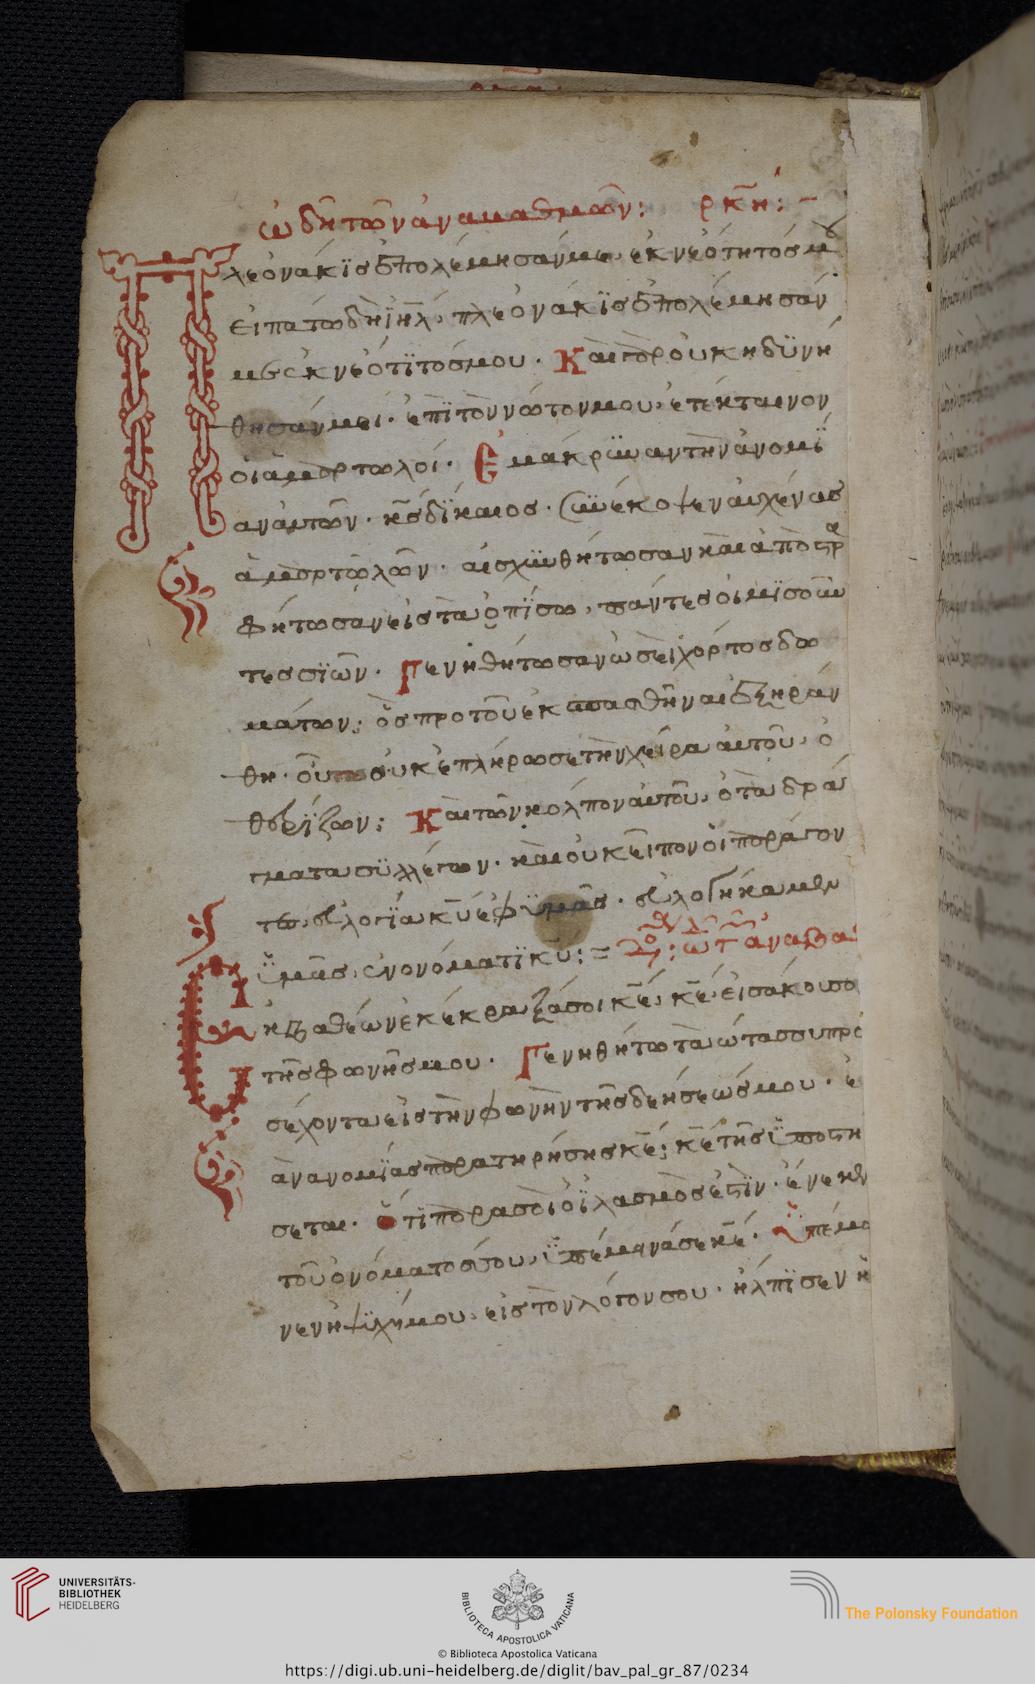 ὠδὴ τῶν ἀναμαθμῶν: ρκη:–
Πλεονάκϊς ἐπολέμησάν με ἐκ νεότητός μου
εἰπάτω δὴ ἰηλ, πλεονάκϊς ἐπολέμησάν
με ἐκ νεότϊτος μου. Καὶ γὰρ οὐκ ηδϋνή
θησάν μοι. ἐπὶ τὸν νῶτον μου, ἐτέκταινον
οἱ ἁμαρτωλοί. Ἐμάκρϋναν τὴν ἀνομΐ
αν αὐτῶν. κς δΐκαιος. Σϋνέκοψεν αὐχένας
ἁμαρτωλῶν. αἰσχϋνθήτωσαν καὶ ἀποστρα
φήτωσαν εἰς τὰ ὀπίσω, πάντες οἱ μϊσοῦν
τες σϊών. Γενηθήτωσαν ὡσεὶ χόρτος δω
μάτων, ὃς πρὸ τοῦ ἐκσπασθῆναι ἐξηράν
θη. οὗ οὐκ ἐπλήρωσε τὴν χεῖρα αὐτοῦ, ὁ
θερΐζων: Καὶ τῶν κόλπον αὐτοῦ, ὁ τὰ δρά
γματα συλλέγων. καὶ οὐκ εἶπον οἱ παράγον
τες, εὐλογΐα κυ ἐφ ϋμᾶς. εὐλογήκαμεν
ϋμᾶς, ἐν ονόματϊ κυ:= ὠ τ αναβα
Ἐκ βαθέων ἐκέκραξά σοι κε, κε εἰσάκουσο
τῆς φωνῆς μου. Γενηθήτω τὰ ὦτα σου προ
σέχοντα εἰς τὴν φωνὴν τῆς δεήσεώς μου. ἐ
ὰν ανομΐας παρατηρήσης κε; κε τῆς ϋποστη
σεται. Ὅτϊ παρὰ σοὶ ὁ ϊλασμὸς ἐστὶν. ἕνεκεν
τοῦ ὀνόματος σου, ϋπέμεινά σε κε. Ϋπέμει
νεν ἡ ψϋχή μου, εἰς τὸν λόγον σου. ἤλπϊσεν ἡ
UNIVERSITÄTS-
BIBLIOTHEK
HEIDELBERG
BIBLIOTECA APOSTOLICA VATICANA
The Polonsky Foundation
© Biblioteca Apostolica Vaticana
https://digi.ub.uni-heidelberg.de/diglit/bav_pal_gr_87/0234